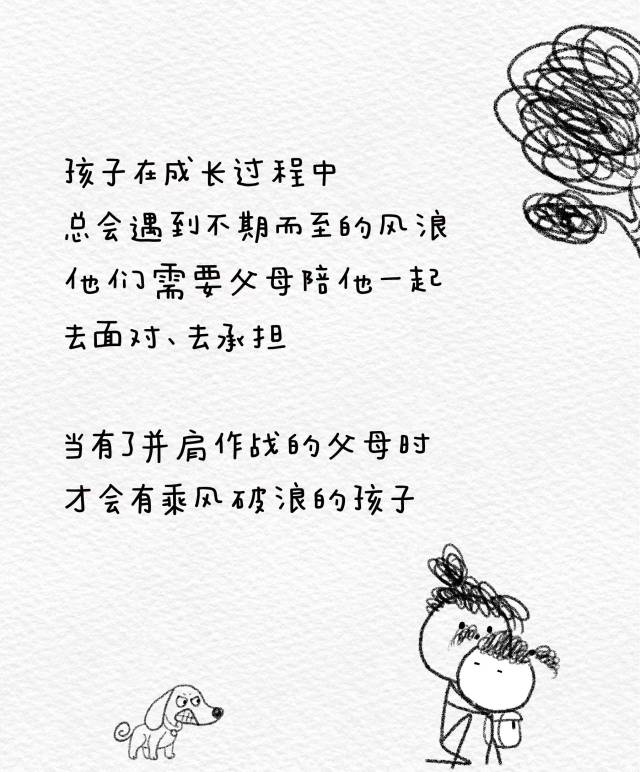 孩子在成长过程中
总会遇到不期而至的风浪
他们需要父母陪他一起
去面对、去承担
当有了并肩作战的父母时
才会有乘风破浪的孩子